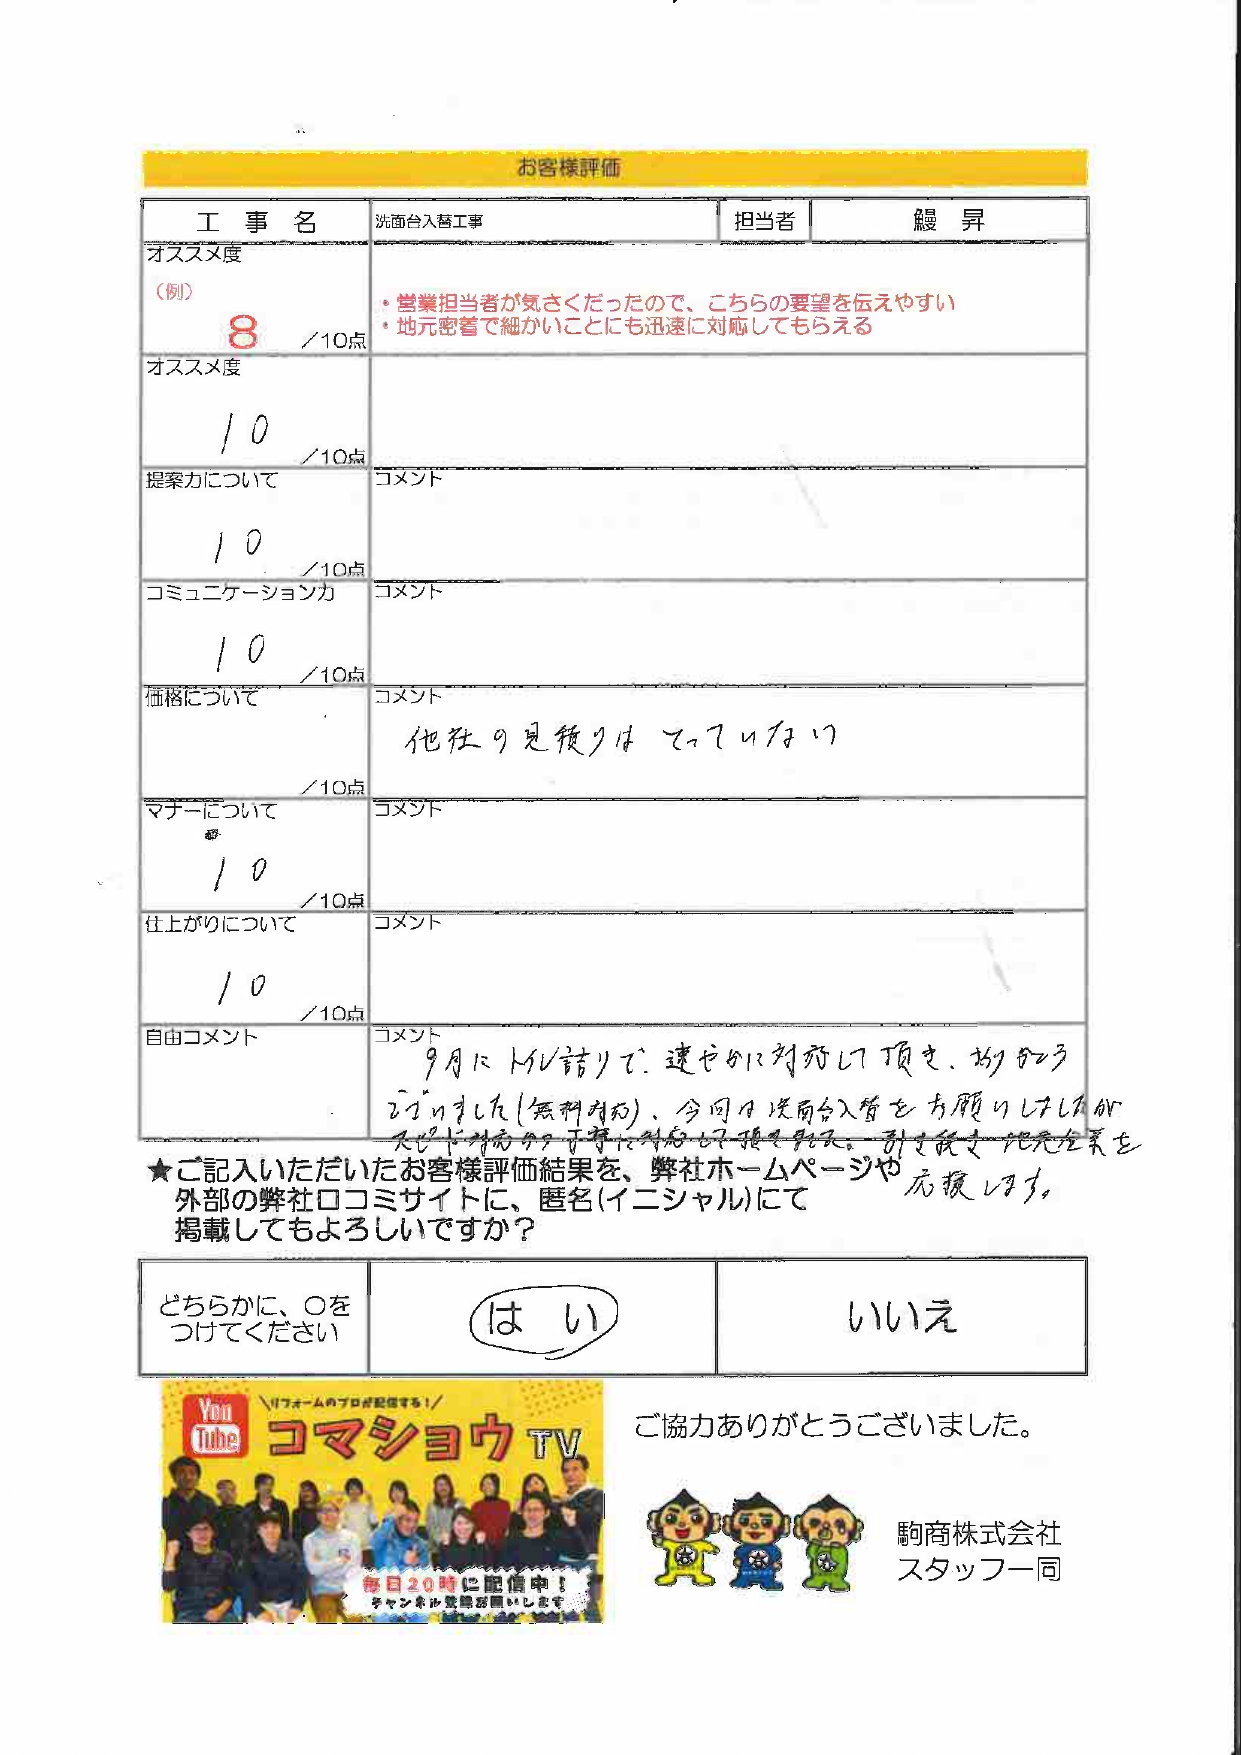 お客様評価
工 事 名 洗面台入替工事 担当者 鰻 昇
オススメ度
(例)
8 /10点
・営業担当者が気さくだったので、こちらの要望を伝えやすい
・地元密着で細かいことにも迅速に対応してもらえる
オススメ度
10 /10点
提案力について コメント
10 /10点
コミュニケーション力 コメント
10 /10点
価格について コメント
他社の見積りは とっていない
/10点
マナーについて コメント
10 /10点
仕上がりについて コメント
10 /10点
自由コメント コメント
9月にトイレ詰りで、速やかに対応して頂き、ありがとう
ございました(無料対応)、今回は洗面台入替をお願いしましたが
スピード対応かつ丁寧に対応して頂きました。引き続き 地元企業を
応援します。
★ご記入いただいたお客様評価結果を、弊社ホームページや
外部の弊社口コミサイトに、匿名(イニシャル)にて
掲載してもよろしいですか?
どちらかに、○を
つけてください
は い いいえ
You
Tube
\リフォームのプロが配信する!/
コマショウTV
毎日20時に配信中!
チャンネル登録お願いします
ご協力ありがとうございました。
駒商株式会社
スタッフ一同